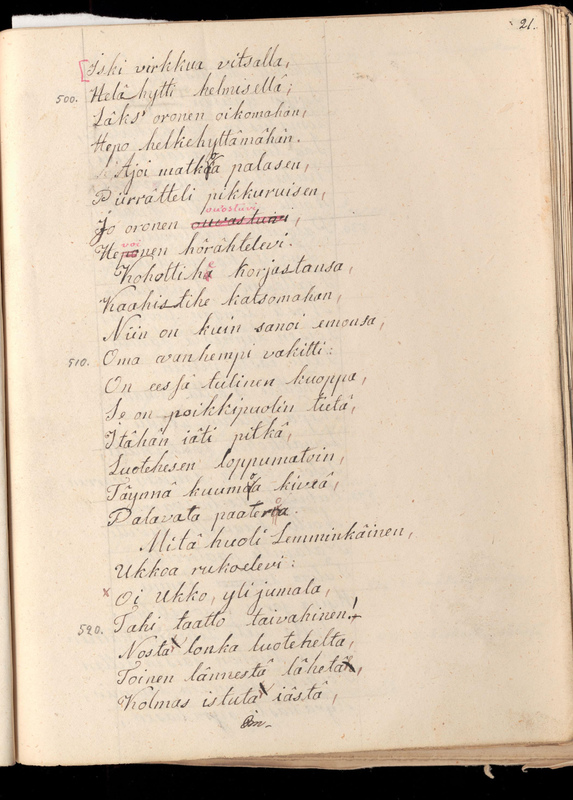 21.
Iski virkkua vitsalla,
500. Helähytti helmisellä;
Läks' oronen oikomahan,
Hepo helkehyttämähän.
Ajoi matkoa palasen,
Piirrätteli pikkuruisen,
Jo oronen ouvastuvi,
ouostuvi
Heponen hörähtelevi.
voi
Kohottihe korjastansa,
Kaahistihe katsomahan,
Niin on kuin sanoi emonsa,
510. Oma vanhempi vakitti:
On eessä tulinen kuoppa,
Se on poikkipuolin tietä,
Itähän iäti pitkä,
Luotehesen loppumatoin,
Täynnä kuumoa kiveä,
Palavata paateroa.
Mitä huoli Lemminkäinen,
Ukkoa rukoelevi:
x Oi Ukko, ylijumala,
520. Tahi taatto taivahinen!
Nosta lonka luotehelta,
Toinen lännestä lähetä,
Kolmas istuta iästä,